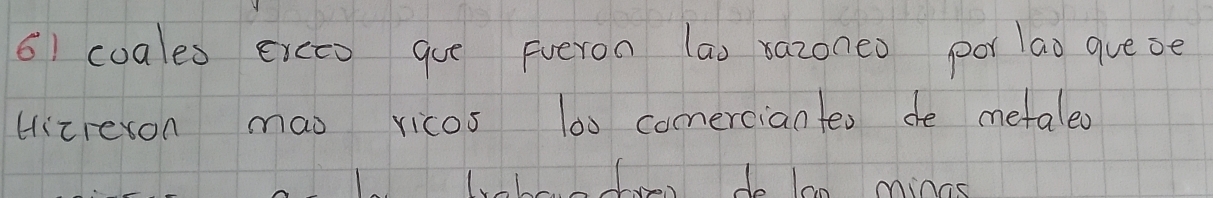 6) coales creeo que Fueron las razones por las que se
Hicieron mas ricos los comerciantes de metales
de las minas